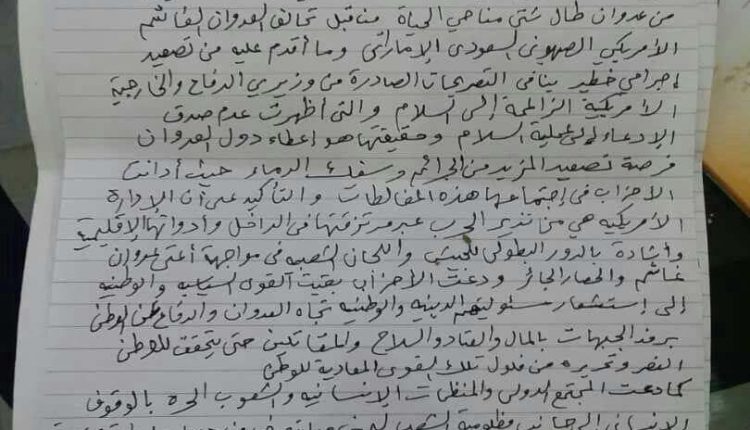 من عدوان طال شتى مناحي الحياة من قبل تحالف العدوان الغاشم
الأمريكي الصهيوني السعودي الإماراتي وما أقدم عليه من تصعيد
إجرامي خطير ينافي التصريحات الصادرة من وزيري الدفاع والخارجية
الأمريكية الزاعمة إلى السلام والتي أظهرت عدم صدق
الإدعاء لعملية السلام وحقيقتها هو إعطاء دول العدوان
فرصة تصعيد المزيد من الجرائم وسفك الدماء حيث أدانت
الأحزاب في إجتماعها هذه المغالطات والتأكيد على أن الإدارة
الأمريكيه هي من تدير الحرب عبر مرتزقتها في الداخل وأدواتها الإقليمية
وأشادة بالدور البطولي للجيش واللجان الشعبيه في مواجهة أعتى عدوان
غاشم والحصار الجائر ودعت الأحزاب بقيت القوى السياسيه والوطنيه
إلى إستشعار مسئوليتهم الدينيه والوطنيه تجاه العدوان والدفاع عن الوطن
برفد الجبهات بالمال والعتاد والسلاح والمقاتلين حتى يتحقق للوطن
النصر وتحريره من فلول تلك القوى المعادية للوطن
كما دعت المجتمع الدولي والمنظمات الإنسانيه والشعوب الحره بالوقوف
الإنساني إلى جانب مظلومية الشعب